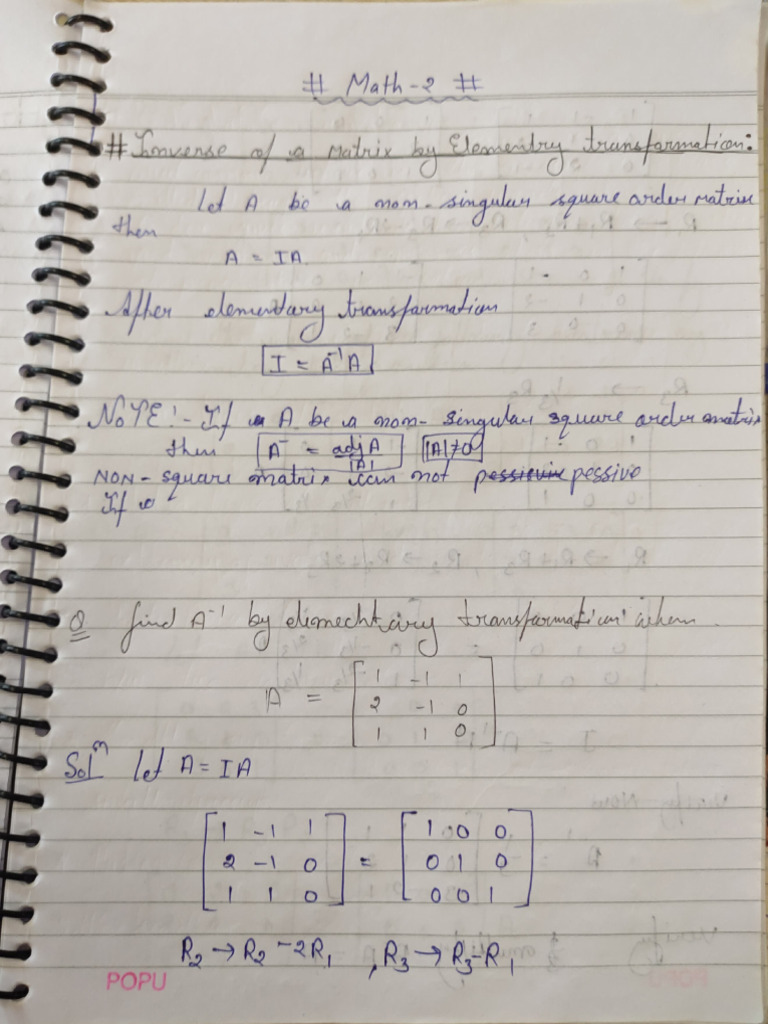 # Math-2 #
# Inverse of a Matrix by Elementry transformation:
Let A be a non-singular square order matrix
then
A = IA
After elementary transformation
I = A⁻¹A
NOTE:- If A be a non-singular square order matrix
then A⁻ = adj A / |A| |A|≠0
NON-square matrix can not pessive
If
Q find A⁻¹ by elimechtairy transformation when.
A = [ 1 -1 1
2 -1 0
1 1 0 ]
Solⁿ Let A = IA
[ 1 -1 1 ] [ 1 0 0 ]
[ 2 -1 0 ] = [ 0 1 0 ]
[ 1 1 0 ] [ 0 0 1 ]
R₂ → R₂ -2R₁ , R₃ → R₃-R₁
POPU